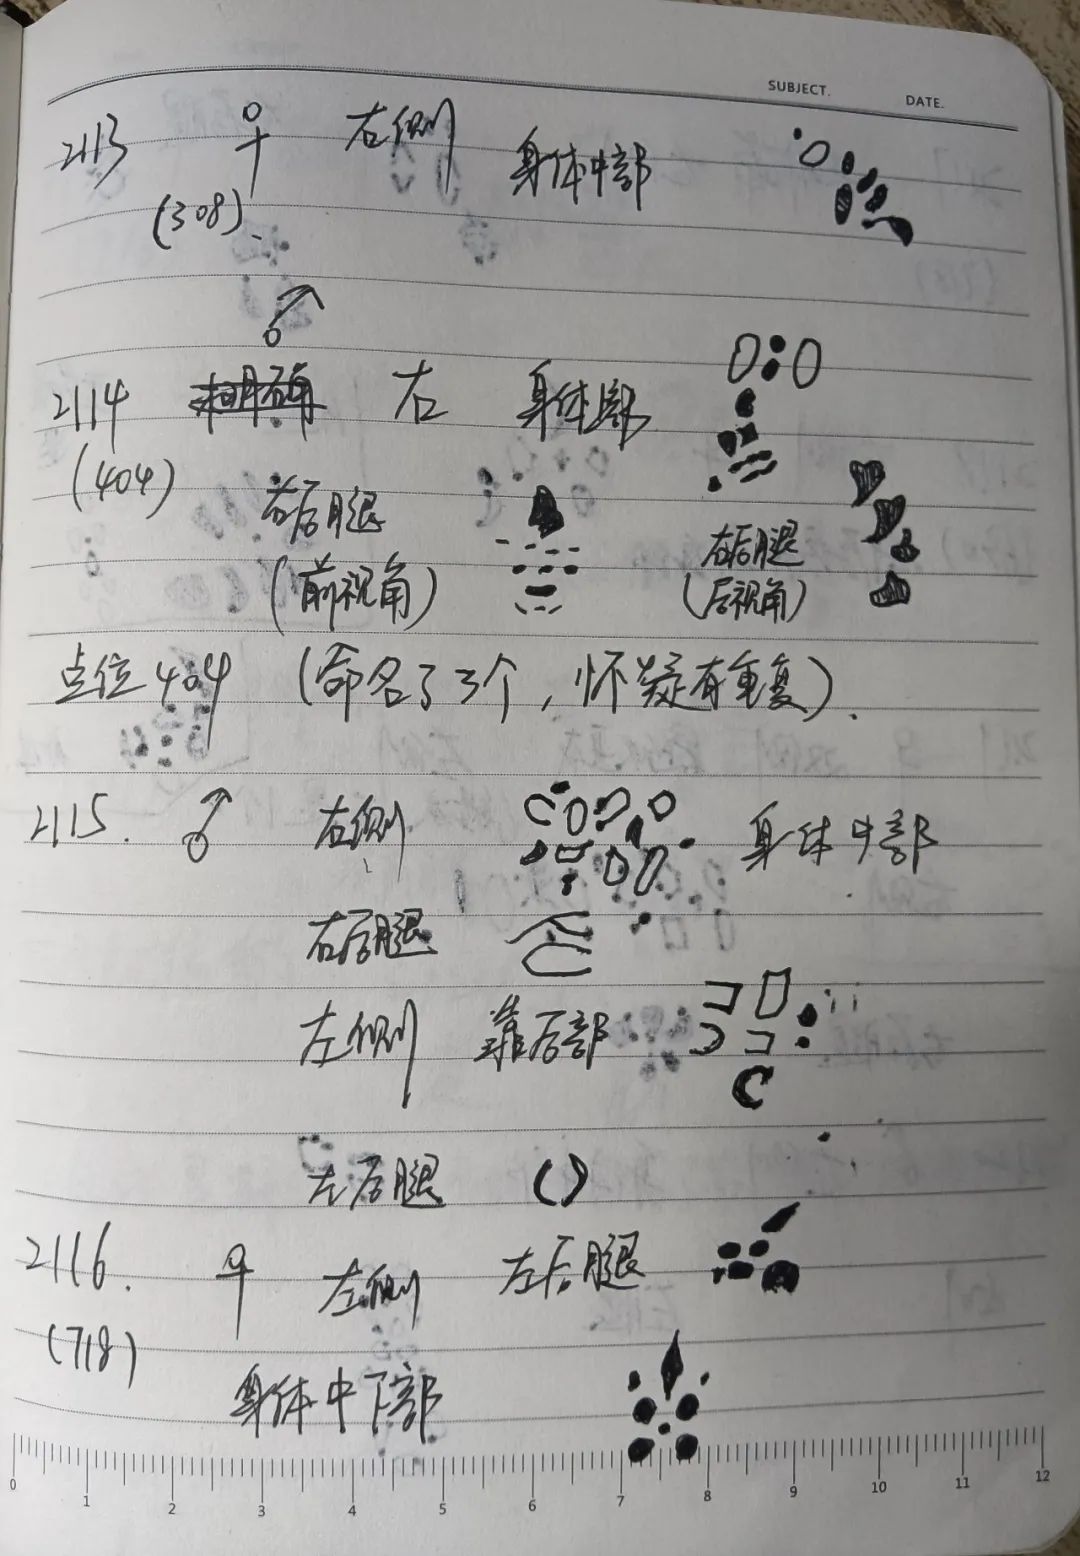 SUBJECT. DATE.
2113 ♀ 右侧 身体中部
(308).
♂
2114 右 身体
(404) 右后腿 右后腿
(前视角) (后视角)
点位404 (命名了3个,怀疑有重复).
2115. ♂ 右侧 身体中部
右后腿
左侧 靠后部
左后腿
2116. ♀ 左侧 左后腿
(718)
身体中下部
0 1 2 3 4 5 6 7 8 9 10 11 12